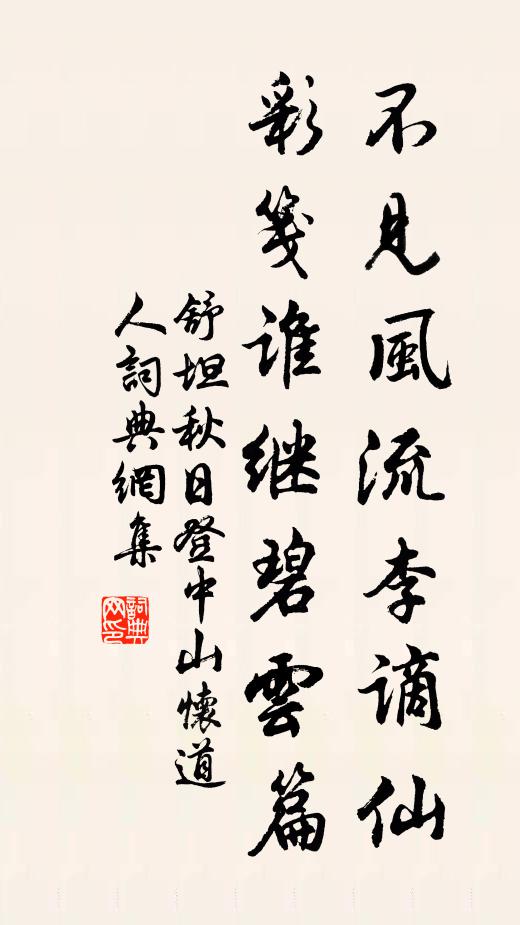 不見風流李謫仙
彩箋誰继碧雲篇
舒坦秋日登中山懷道
人詞典網集
詞典网印